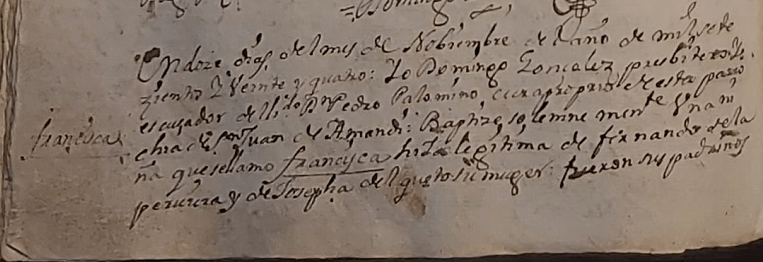 Domingo
En doze dias del mes de Nobiembre del año de mil sete
zientos Y Veinte y quatro: Yo Domingo Gonzalez presbitero the
escusador del li.do Dn Pedro Palomino cura proprio de esta parro
chia de Son Juan de Amandi: Baptize solemne mente Una ni
francisca
ña que se llamo francisca hija legitima de fernando de la
peruiera y de Josepha del gueto su muger: fueron sus padrinos